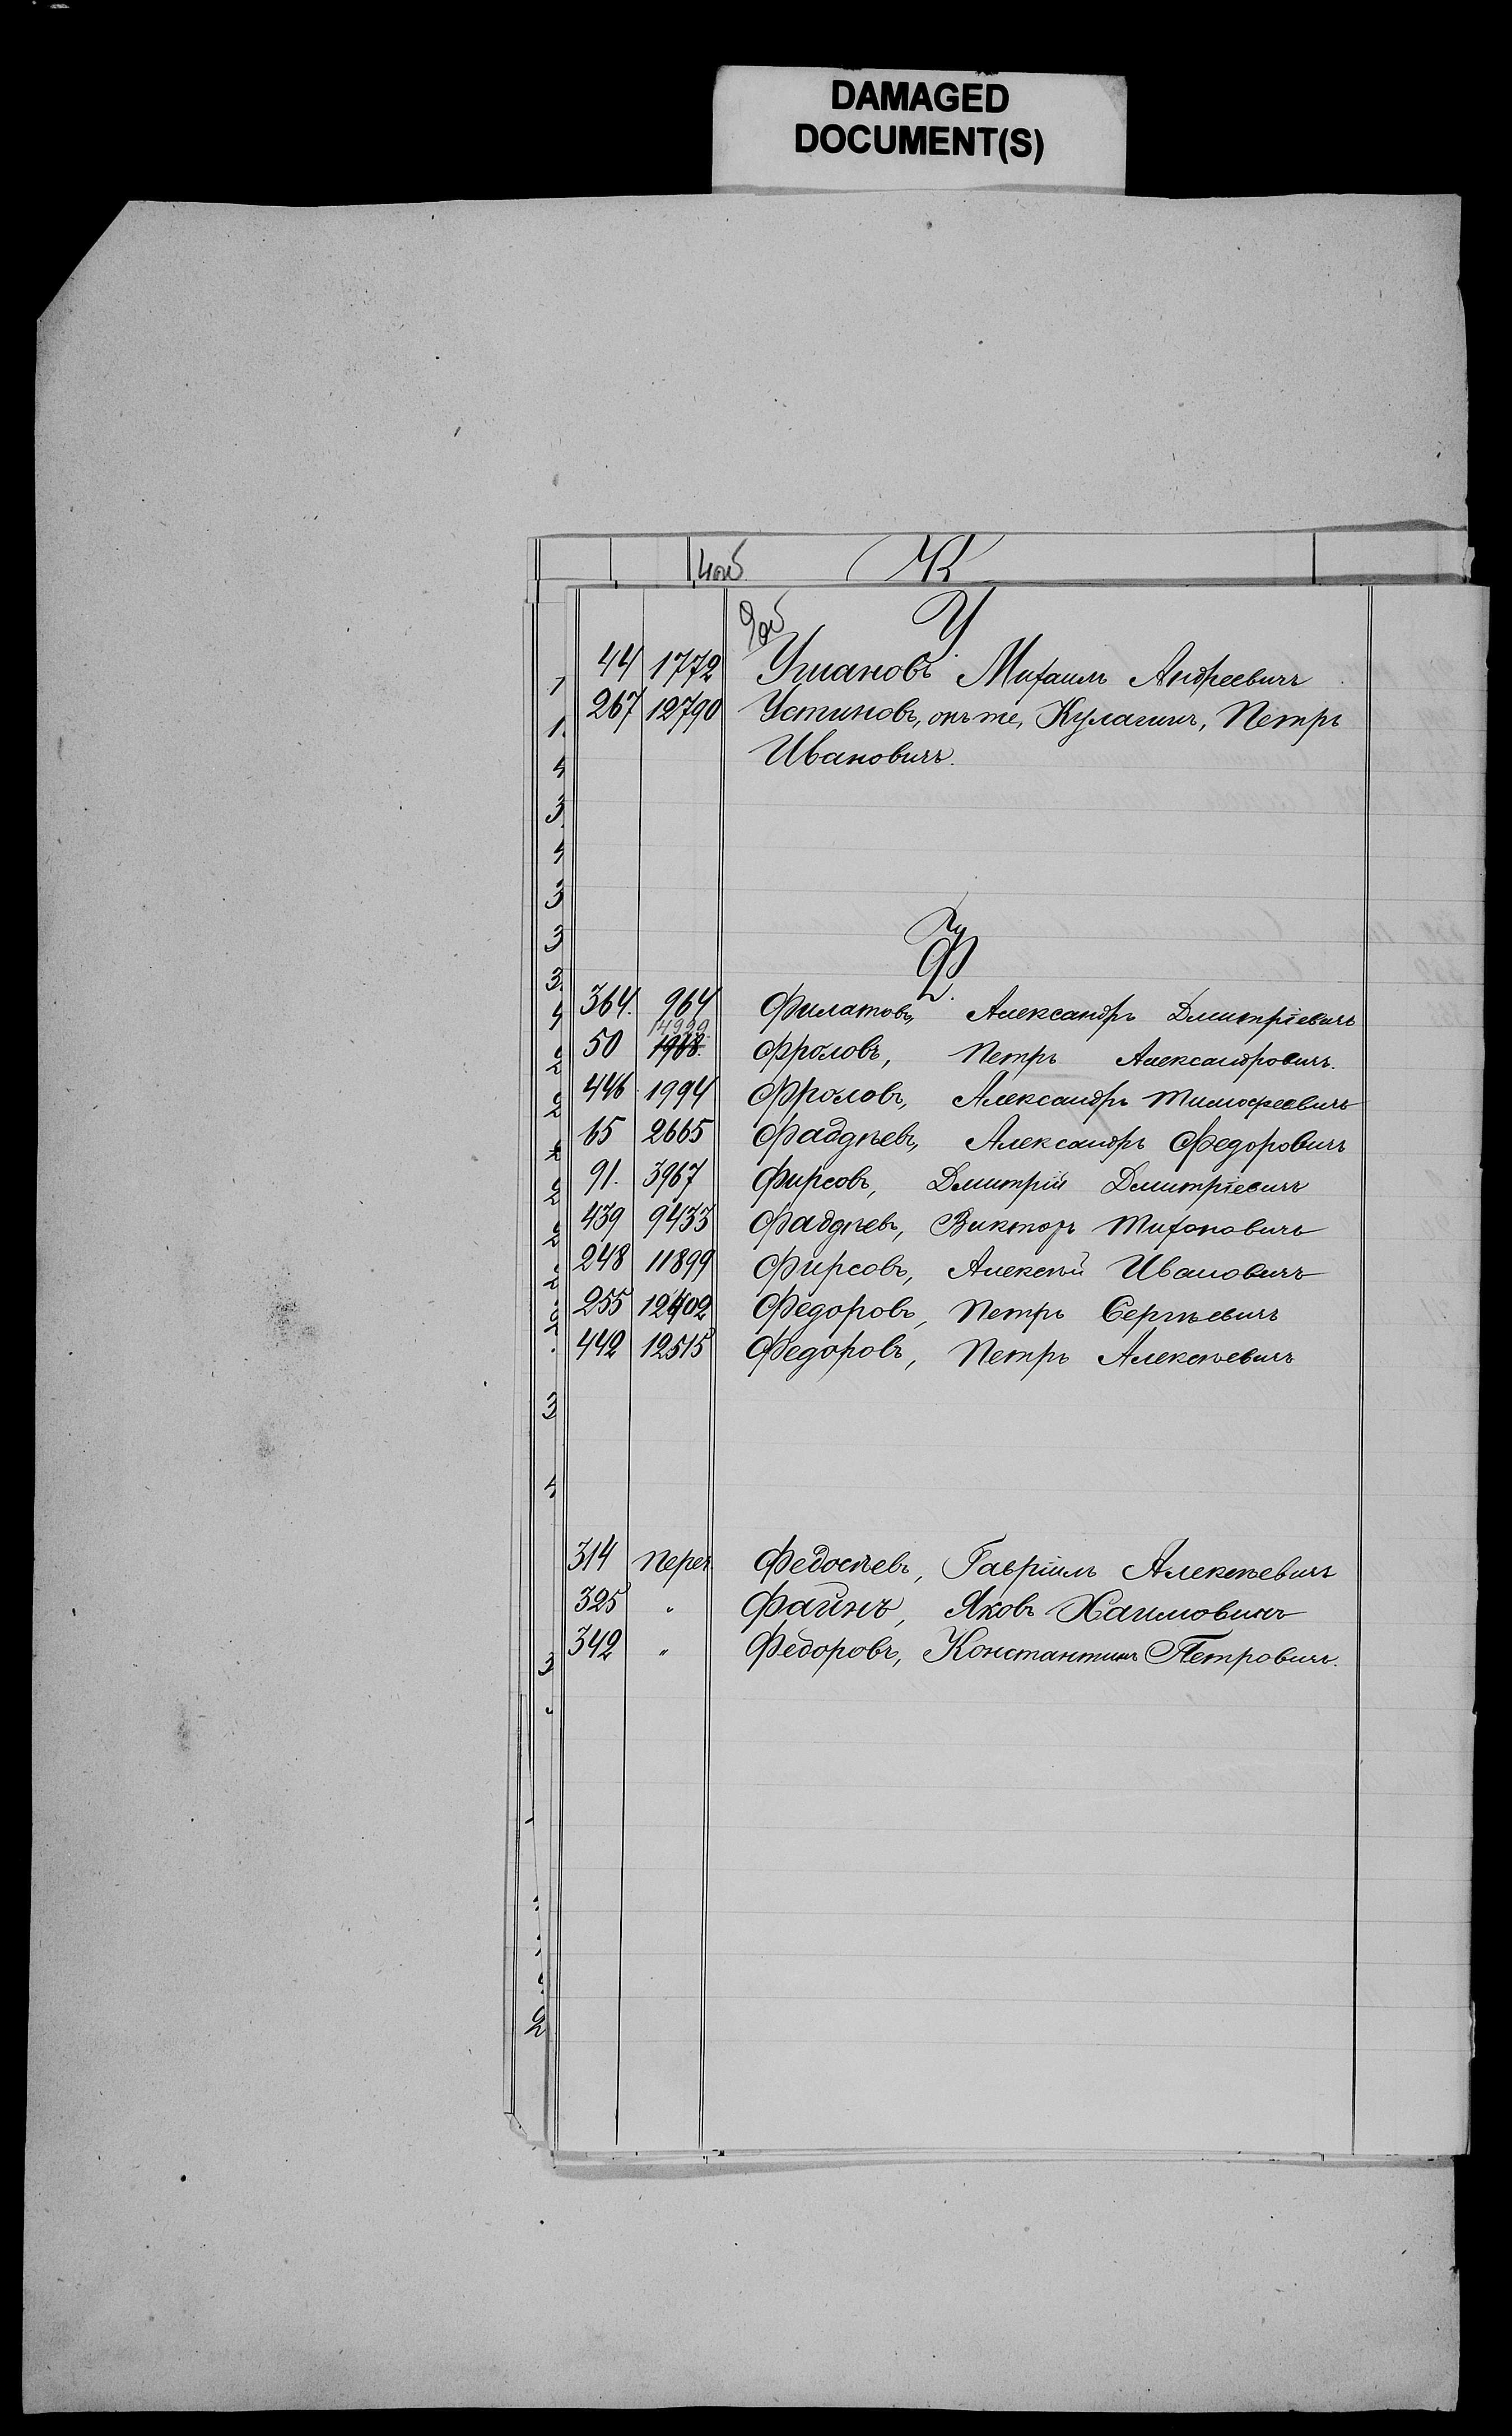 DAMAGED
DOCUMENT(S)
К
У
44 1772 Ушановъ Михаилъ Андреевичъ
267 12790 Устиновъ, онъ же, Кулагинъ, Петръ
Ивановичъ.
Ф
364. 964 Филатовъ, Александръ Дмитріевичъ
14999
50 1968. Фроловъ, Петръ Александровичъ.
446 1994 Фроловъ, Александръ Тимофеевичъ
65 2665 Фаддѣевъ, Александръ Федоровичъ
91. 3967 Фирсовъ, Дмитрій Дмитріевичъ
439 9433 Фаддѣевъ, Викторъ Тихоновичъ
248 11899 Фирсовъ, Алексѣй Ивановичъ
255 12402 Федоровъ, Петръ Сергѣевичъ
442 12515 Федоровъ, Петръ Алексѣевичъ
314 Переч. Федосѣевъ, Гавріилъ Алексѣевичъ
325 " Файнъ, Яковъ Хаимовичъ
342 " Федоровъ, Константинъ Петровичъ.